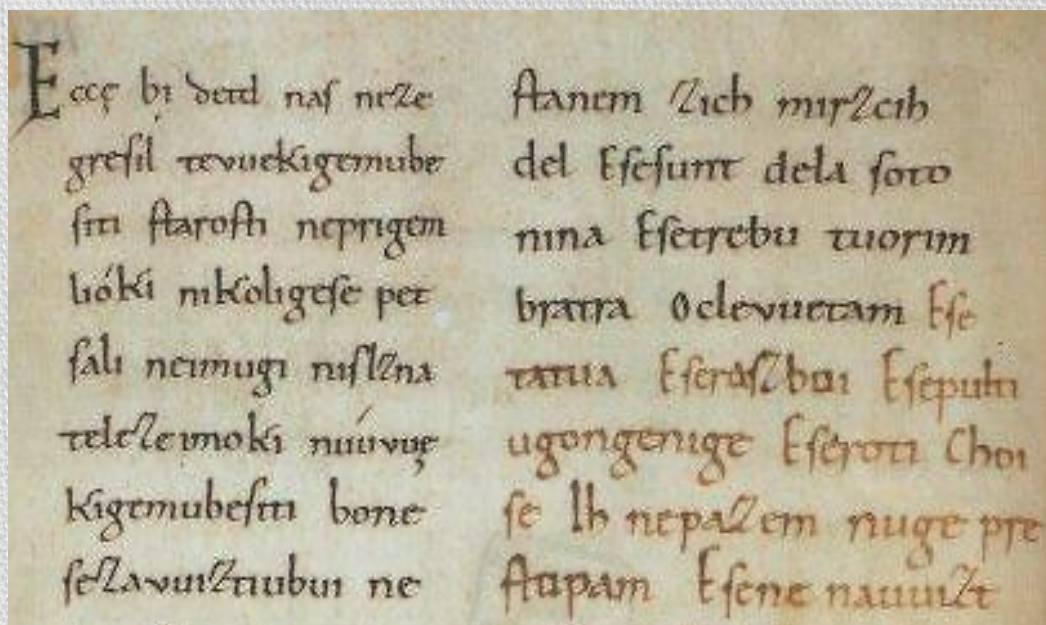 Eccę bi detd naſ neze
greſil tevuekigemube
ſiti ſtaroſti neprigem
lióki nikoligeſe pet
ſali neimugi niſlzna
teleze imoki nuúvuę
kigemubeſiti bone
ſezavuiztiubui ne
ſtanem zich mirzcih
del Eſeſunt dela ſoto
nina Eſetrebu tuorim
bratra Oclevuetam Eſe
tatua Eſeraſzboi Eſepulti
ugongenige Eſeroti Choi
ſe Ih nepazem nuge pre
ſtupam Eſene nauuizt